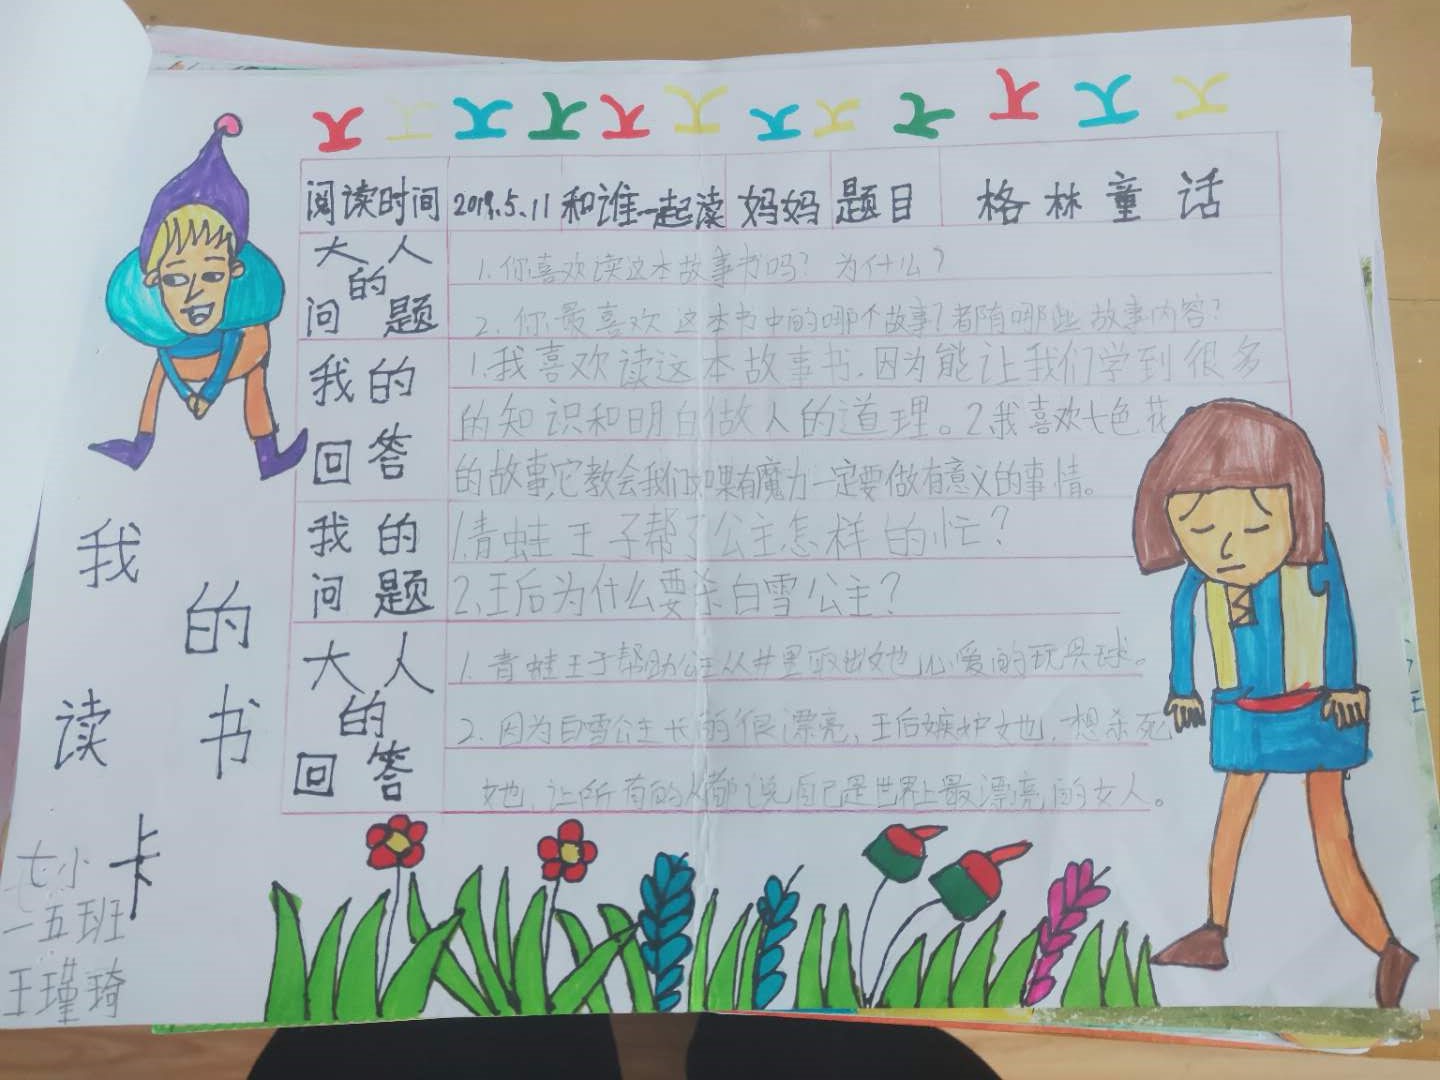 阅读时间 2019.5.11 和谁一起读 妈妈 题目 格林童话
大人的问题
1.你喜欢读这本故事书吗？为什么？
2.你最喜欢这本书中的哪个故事？都有哪些故事内容？
我的回答
1.我喜欢读这本故事书.因为能让我们学到很多
的知识和明白做人的道理。2.我喜欢七色花
的故事,它教会我们如果有魔力一定要做有意义的事情。
我的问题
1.青蛙王子帮了公主怎样的忙？
2.王后为什么要杀白雪公主？
大人的回答
1.青蛙王子帮助公主从井里取出她心爱的玩具球。
2.因为白雪公主长的很漂亮,王后嫉妒她,想杀死
她,让所有的人都说自己是世界上最漂亮的女人。
我的读书卡
七小
一五班
王瑾琦